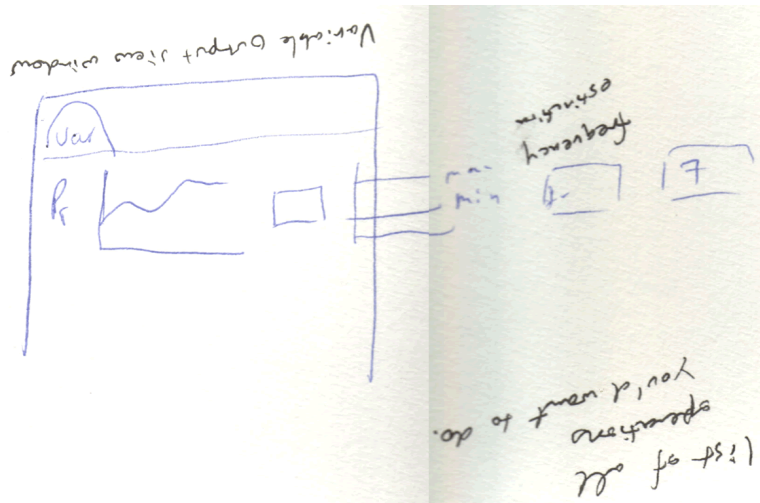 Variable Output view window
Var
frequency
estimation
min
7
list of all
operations
you'd want to do.